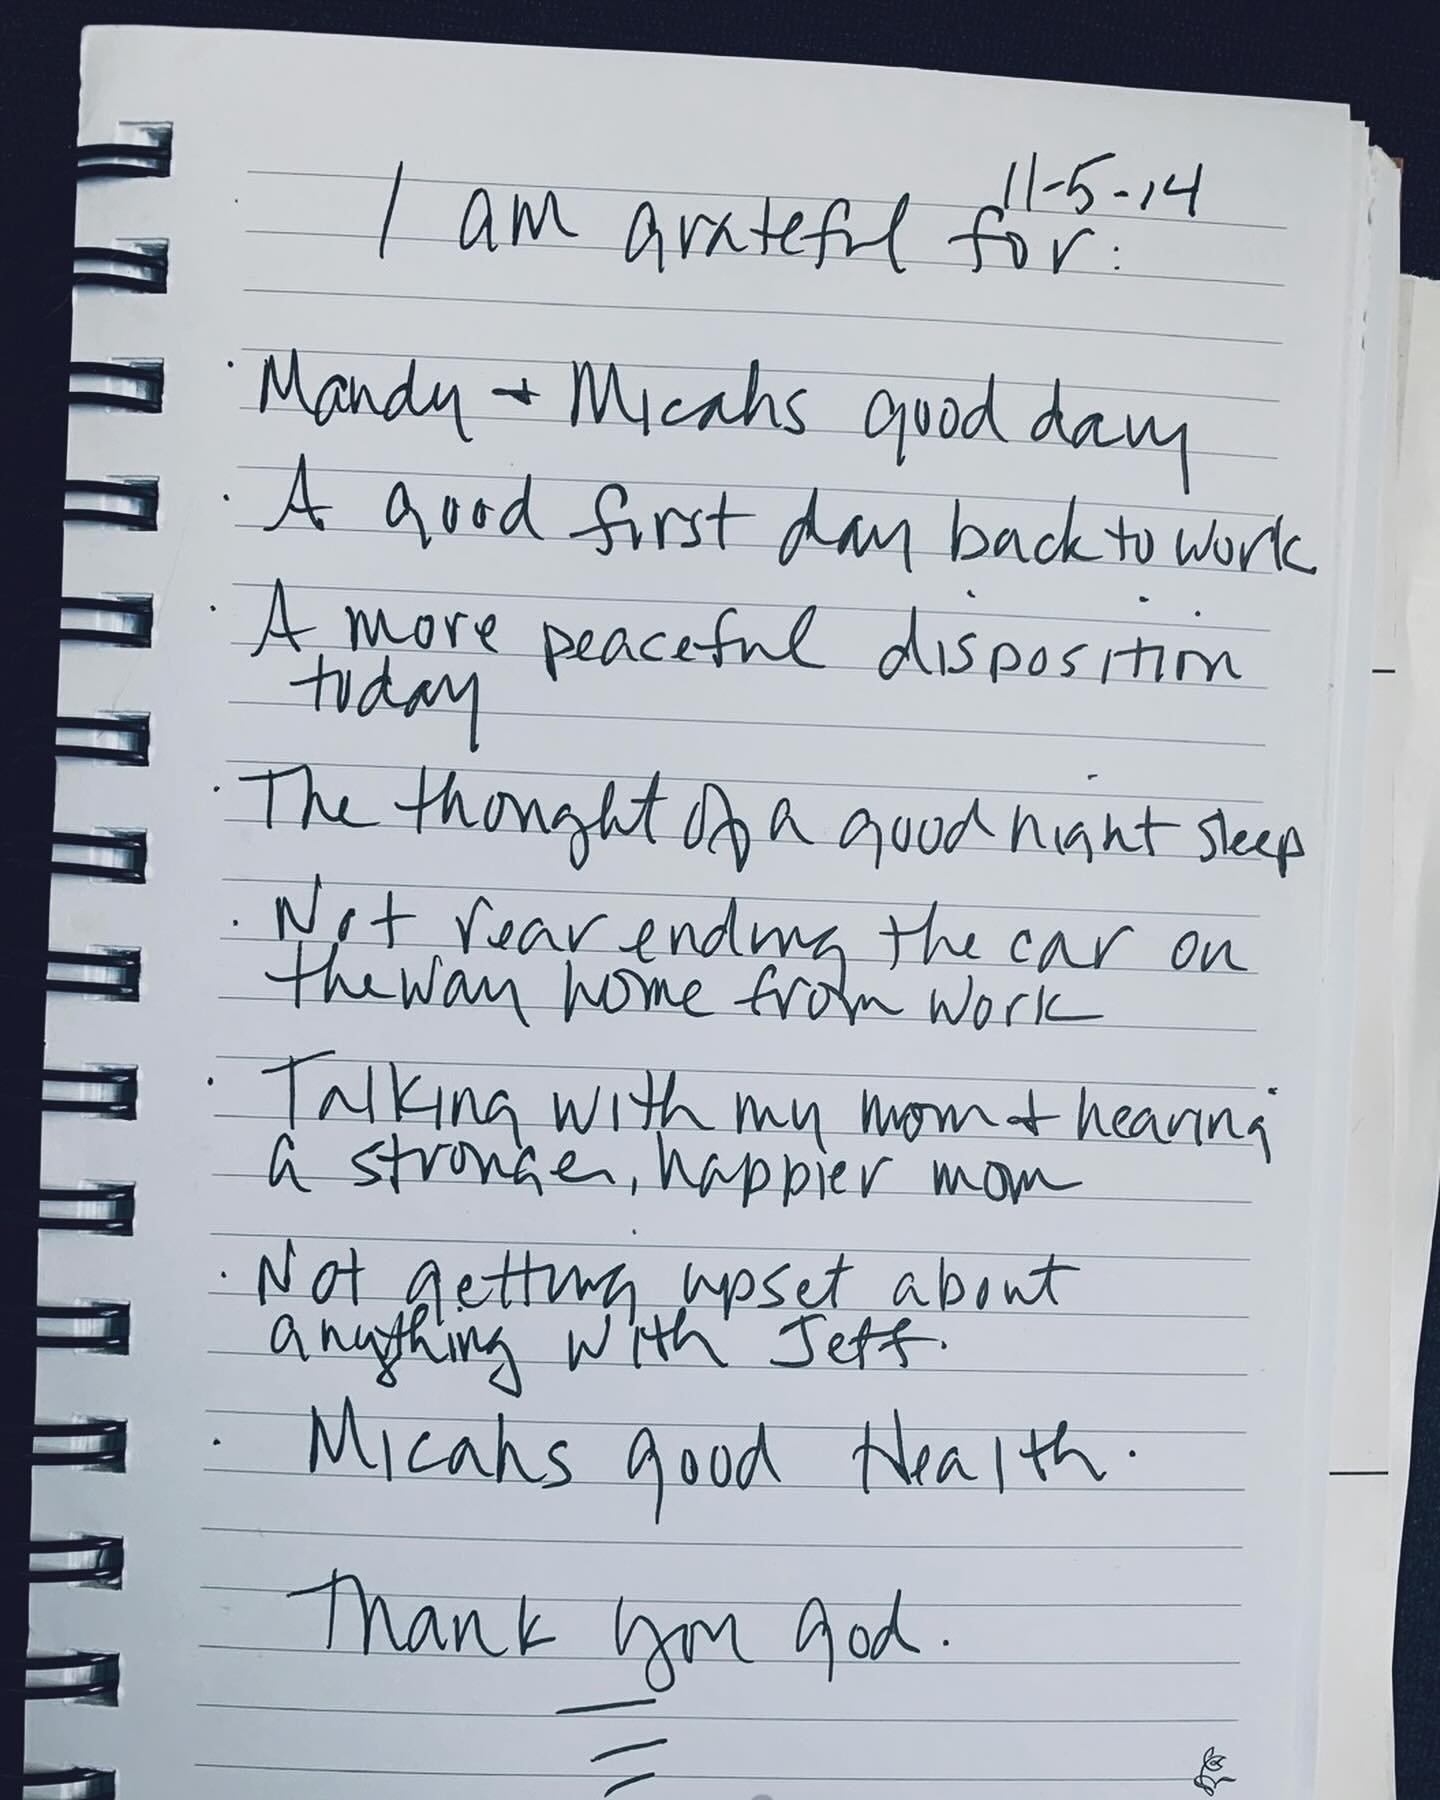 11-5-14
I am grateful for:
· Mandy + Micahs good day
· A good first day back to work
· A more peaceful disposition
today
· The thought of a good night sleep
· Not rear ending the car on
the way home from work
· Talking with my mom + hearing
a stronger, happier mom
· Not getting upset about
anything with Jeff.
· Micahs good Health.
Thank you god.